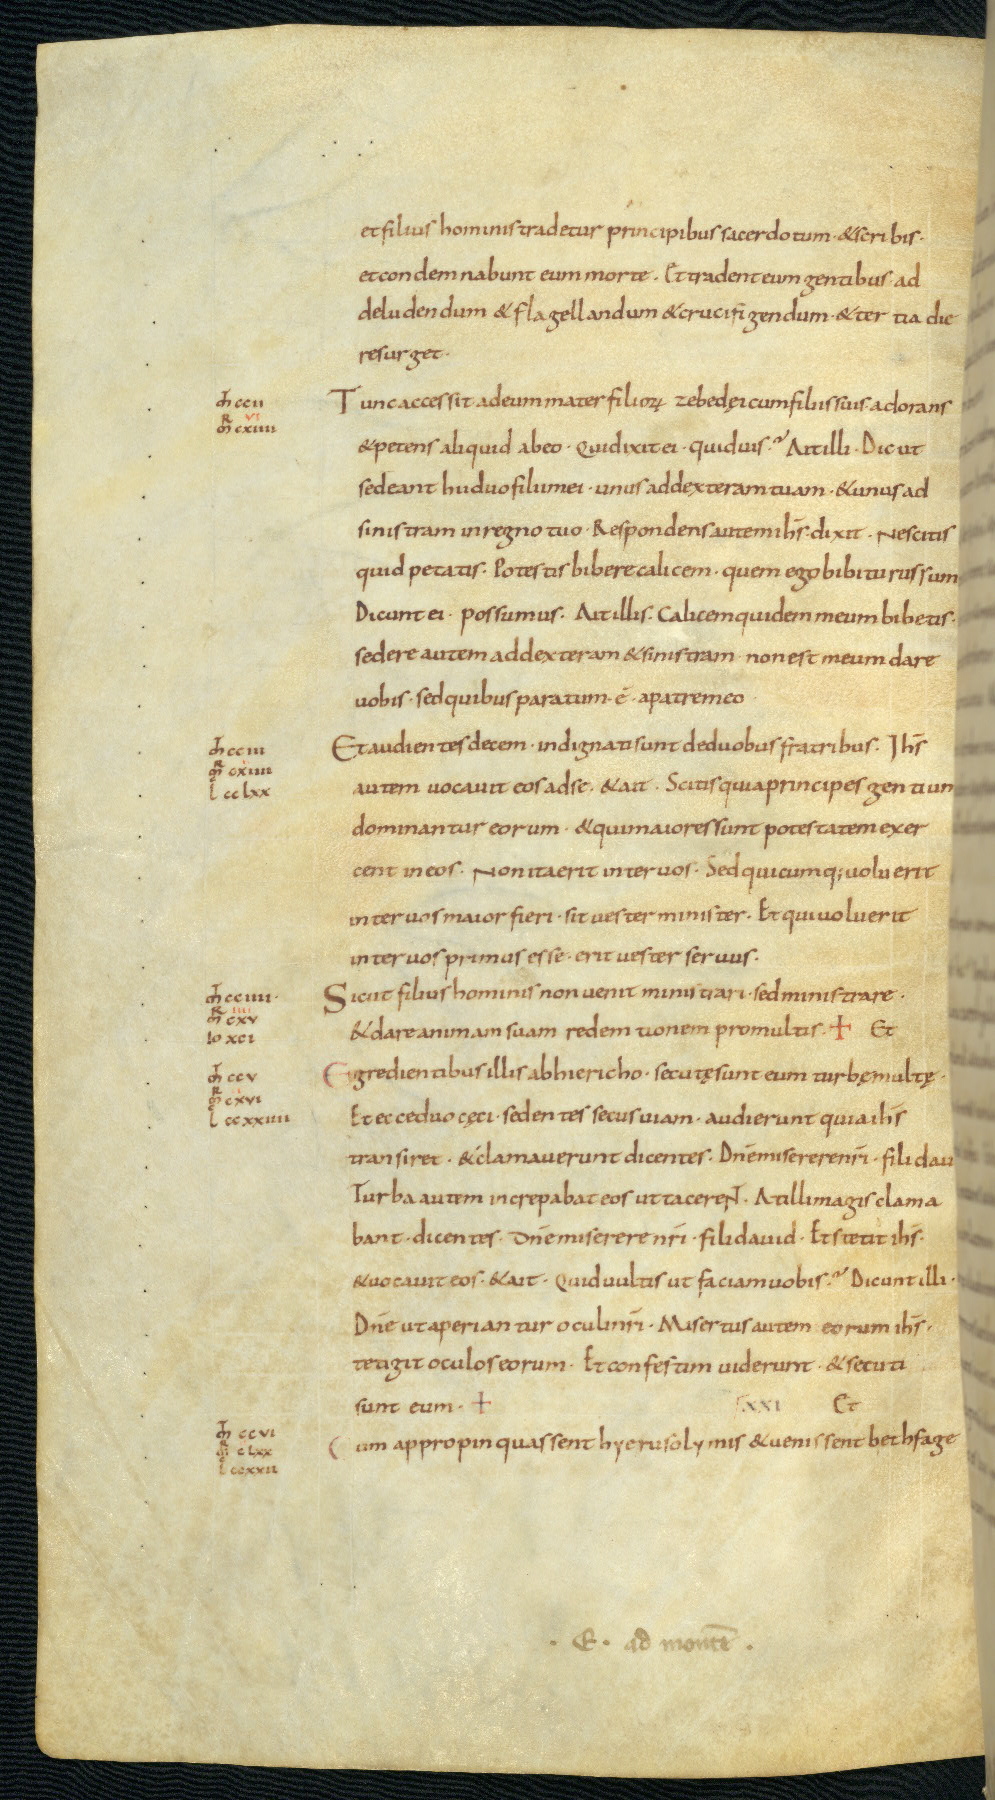 et filius hominis tradetur principibus sacerdotum · & scribis ·
et condemnabunt eum morte . Et tradent eum gentibus ad
deludendum & flagellandum & crucifigendum · & tertia die
resurget ·
ccii
Tunc accessit ad eum mater filioꝝ zebedęi cum filiis suis · adorans
cxiiii
vi
& petens aliquid ab eo · Qui dixit ei · quid uis ? Ait illi · Dic ut
sedeant hi duo filii mei · unus ad dexteram tuam · & unus ad
sinistram in regno tuo · Respondens autem ihs̄ · dixit · Nescitis
quid petatis · Potestis bibere calicem · quem ego bibiturus sum
Dicunt ei · possumus · Ait illis · Calicem quidem meum bibetis ·
sedere autem ad dexteram & sinistram · non est meum dare
uobis · sed quibus paratum · ē · a patre meo
cciii
Et audientes decem · indignati sunt de duobus fratribus · Ihs̄
cxiiii
l cclxx
autem uocauit eos ad se · & ait · Scitis quia principes gentium
dominantur eorum · & qui maiores sunt potestatem exer
cent in eos · Non ita erit inter uos · Sed quicumq; uoluerit
inter uos maior fieri · sit uester minister · Et qui uoluerit
inter uos primus esse · erit uester seruus ·
cciiii ·
Sicut filius hominis non uenit ministrari · sed ministrare ·
cxv
io xci
& dare animam suam redemtionem pro multis · + Et
ccv
Egredientibus illis ab hiericho · secutę sunt eum turbę multę ·
cxvi
l ccxxiiii
Et ecce duo cęci · sedentes secus uiam · audierunt quia ihs̄
transiret · & clamauerunt dicentes · Dn̄e miserere nr̄i · fili dau
Turba autem increpabat eos ut tacerent · At illi magis clama
bant · dicentes · Dn̄e miserere nr̄i · fili dauid · Et stetit ihs̄ ·
& uocauit eos · & ait · Quid uultis ut faciam uobis ? Dicunt illi ·
Dn̄e ut aperiantur oculi nr̄i · Misertus autem eorum ihs̄ ·
tetigit oculos eorum · Et confestim uiderunt · & secuti
sunt eum · + Et
ccvi
Cum appropinquassent hyerusolymis & uenissent bethfage
clxx
l ccxxii
· E · ad montē ·